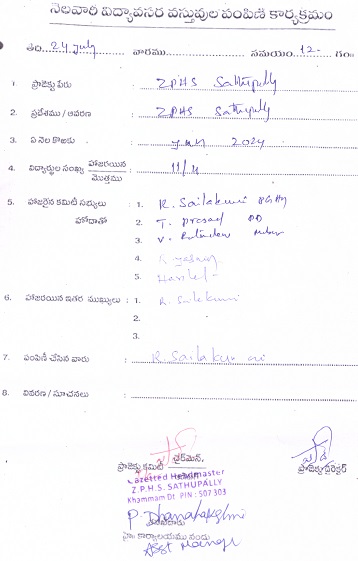 నెలవారీ విద్యావసర వస్తువుల పంపిణీ కార్యక్రమం
తేది 24 July వారము సమయం 12- గం॥
1. ప్రాజెక్టు పేరు : ZPHS Sathupally
2. ప్రదేశము / ఆవరణ : ZPHS Sathupally
3. ఏ నెల కొఱకు : 2024
4. విద్యార్థుల సంఖ్య హాజరయిన / మొత్తము : 11/11
5. హాజరైన కమిటీ సభ్యులు : 1. R. Sailakumari
హోదాతో 2. T. Prasad
3. V.
4.
5.
6. హాజరయిన ఇతర ముఖ్యులు : 1. R. Sailakumari
2.
3.
7. పంపిణీ చేసిన వారు : R. Sailakumari
8. వివరణ / సూచనలు :
ప్రాజెక్టు కమిటీ ఛైర్మెన్, ప్రాజెక్టు డైరెక్టర్
Gazetted Headmaster
Z.P.H.S. SATHUPALLY
Khammam Dt PIN : 507 303
P. Dhanalakshmi
కార్యాలయము నందు